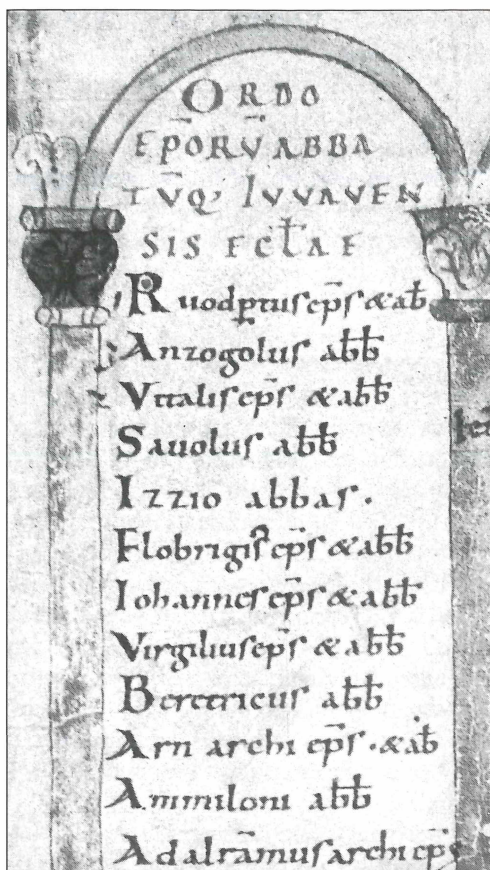 ORDO
EP̄ORV̄ ABBA
TV̄Q; IVVAVEN
SIS ECCL̄AE
Ruodp̱tus ep̄s & ab̄
Anzogolus ab̄b
Vitalis ep̄s & ab̄b
Sauolus ab̄b
Izzio abbas.
Flobrigis ep̄s & ab̄b
Iohannes ep̄s & ab̄b
Virgilius ep̄s & ab̄b
Bertricus ab̄b
Arn archi ep̄s. & ab̄
Ammiloni ab̄b
Adalrāmus archi ep̄s